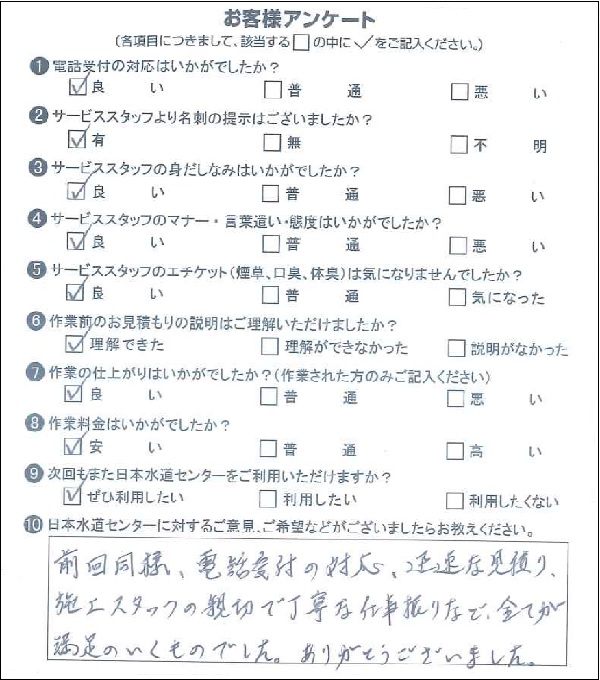 お客様アンケート
(各項目につきまして、該当する□の中に✓をご記入ください。)
❶電話受付の対応はいかがでしたか?
☑良い □普通 □悪い
❷サービススタッフより名刺の提示はございましたか?
☑有 □無 □不明
❸サービススタッフの身だしなみはいかがでしたか?
☑良い □普通 □悪い
❹サービススタッフのマナー・言葉遣い・態度はいかがでしたか?
☑良い □普通 □悪い
❺サービススタッフのエチケット(煙草、口臭、体臭)は気になりませんでしたか?
☑良い □普通 □気になった
❻作業前のお見積もりの説明はご理解いただけましたか?
☑理解できた □理解ができなかった □説明がなかった
❼作業の仕上がりはいかがでしたか?(作業された方のみご記入ください)
☑良い □普通 □悪い
❽作業料金はいかがでしたか?
☑安い □普通 □高い
❾次回もまた日本水道センターをご利用いただけますか?
☑ぜひ利用したい □利用したい □利用したくない
❿日本水道センターに対するご意見、ご希望などがございましたらお教えください。
前回同様、電話受付の対応、迅速な見積り、
施工スタッフの親切で丁寧な仕事振りなど、全てが
満足のいくものでした。ありがとうございました。